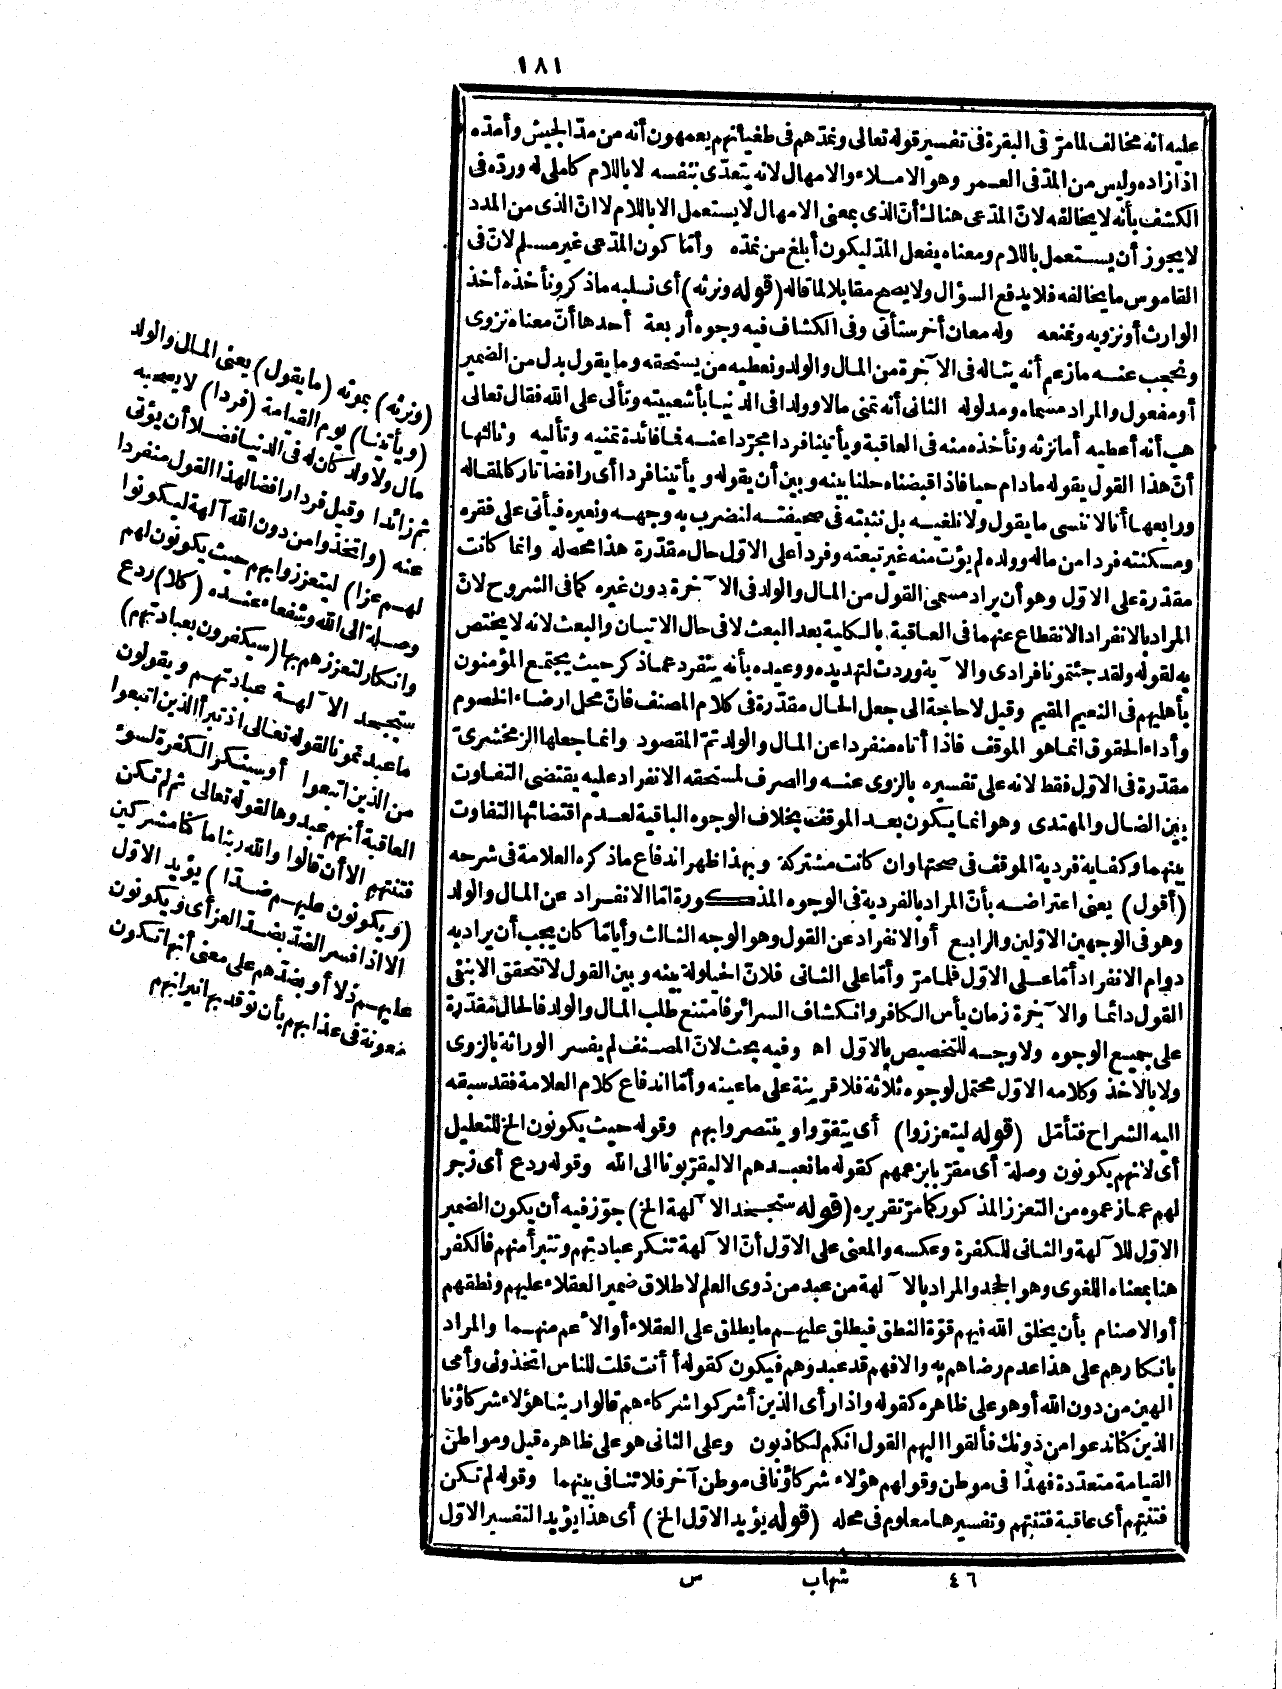 ١٨١
عليه انه مخالف لمامرّ فى البقرة فى تفسير قوله تعالى ونمدّهم فى طغيانهم يعمهون أنه من مدّ الجيش وأمدّه
اذا زاده وليس من المدّ فى العمر وهو الاملاء والامهال لانه يتعدّى بنفسه لا باللام كاملى له وردّه فى
الكشف بأنه لا يخالفه لانّ المدّعى هنالك أنّ الذى بمعنى الامهال لا يستعمل الا باللام لا انّ الذى من المدد
لا يجوز أن يستعمل باللام ومعناه يفعل المدّ ليكون أبلغ من نمدّه وأمّا كون المدّعى غير مسلم لانّ فى
القاموس ما يخالفه فلا يدفع السؤال ولا يصح مقابلا لما قاله (قوله ونرثه) أى نسلبه ماذكر ونأخذه أخذ
الوارث أو نزويه ونمنعه وله معان أخر ستأتى وفى الكشاف فيه وجوه أربعة أحدها أنّ معناه نزوى
ونحجب عنه ما زعم أنه يناله فى الآخرة من المال والولد ونعطيه من يستحقه وما يقول بدل من الضمير
أو مفعول والمراد مسماه ومدلوله الثانى أنه تمنى مالا وولدا فى الدنيا بأشعبيته وتألى على الله فقال تعالى
هب أنه أعطيه أما نرثه ونأخذه منه فى العاقبة ويأتينا فردا مجرّدا عنه فما فائدة تمنيه وتأليه وثالثها
أنّ هذا القول يقوله مادام حيا فاذا قبضناه حلنا بينه وبين أن يقوله ويأتينا فردا أى رافضا تاركا لمقاله
ورابعها أنا لا ننسى ما يقول ولا نلغيه بل نثبته فى صحيفته لنضرب به وجهه ونعيره فيأتى على فقره
ومسكنته فردا من ماله وولده لم يؤت منه غير تبعته وفردا على الاوّل حال مقدّرة هذا محصله وانما كانت
مقدّرة على الاوّل وهو أن يراد مسمى القول من المال والولد فى الآخرة دون غيره كما فى الشروح لانّ
المراد بالانفراد الانقطاع عنهما فى العاقبة بالكلية بعد البعث لا فى حال الاتيان والبعث لانه لا يختص
به لقوله ولقد جئتمونا فرادى والآية وردت لتهديده ووعيده بأنه ينفرد عما ذكر حيث يجتمع المؤمنون
بأهليهم فى النعيم المقيم وقيل لا حاجة الى جعل الحال مقدّرة فى كلام المصنف فانّ محل ارضاء الخصوم
وأداء الحقوق انما هو الموقف فاذا أتاه منفردا عن المال والولد تمّ المقصود وانما جعلها الزمخشرىّ
مقدّرة فى الاوّل فقط لانه على تفسيره بالزوى عنه والصرف لمستحقه الانفراد عليه يقتضى التفاوت
بين الضال والمهتدى وهو انما يكون بعد الموقف بخلاف الوجوه الباقية لعدم اقتضائها التفاوت
بينهما وكفاية فردية الموقف فى صحتها وان كانت مشتركة وبهذا ظهر اندفاع ماذكره العلامة فى شرحه
(أقول) يعنى اعتراضه بأنّ المراد بالفردية فى الوجوه المذكورة امّا الانفراد عن المال والولد
وهو فى الوجهين الاوّلين والرابع أو الانفراد عن القول وهو الوجه الثالث وأيامّا كان يجب أن يراد به
دوام الانفراد أمّا على الاوّل فلما مرّ وأمّا على الثانى فلانّ الحيلولة بينه وبين القول لا تتحقق الا بنفى
القول دائما والآخرة زمان يأس الكافر وانكشاف السرائر فامتنع طلب المال والولد فالحال مقدّرة
على جميع الوجوه ولا وجه للتخصيص بالاوّل اه وفيه بحث لانّ المصنف لم يفسر الوراثة بالزوى
ولا بالاخذ وكلامه الاوّل محتمل لوجوه ثلاثة فلا قرينة على ما عينه وأمّا اندفاع كلام العلامة فقد سبقه
اليه الشراح فتأمّل (قوله ليتعززوا) أى يتقوّوا وينتصروا بهم وقوله حيث يكونون الخ للتعليل
أى لانهم يكونون وصلة أى مقرّبا بزعمهم كقوله ما نعبدهم الا ليقرّبونا الى الله وقوله ردع أى زجر
لهم عما زعموه من التعزز المذكور كما مرّ تقريره (قوله ستجحد الآلهة الخ) جوّز فيه أن يكون الضمير
الاوّل للآلهة والثانى للكفرة وعكسه والمعنى على الاوّل أنّ الآلهة تنكر عبادتهم وتتبرأ منهم فالكفر
هنا بمعناه اللغوى وهو الجحد والمراد بالآلهة من عبد من ذوى العلم لاطلاق ضمير العقلاء عليهم ونطقهم
أو الاصنام بأن يخلق الله فيهم قوّة النطق فيطلق عليهم ما يطلق على العقلاء أو الأعم منهما والمراد
بانكارهم على هذا عدم رضاهم به والا فهم قد عبدوهم فيكون كقوله أأنت قلت للناس اتخذونى وأمى
الهين من دون الله أو هو على ظاهره كقوله واذا رأى الذين أشركوا شركاءهم قالوا ربنا هؤلاء شركاؤنا
الذين كنا ندعوا من دونك فألقوا اليهم القول انكم لكاذبون وعلى الثانى هو على ظاهره قيل ومواطن
القيامة متعدّدة فهذا فى موطن وقولهم هؤلاء شركاؤنا فى موطن آخر فلا تنافى بينهما وقوله لم تكن
فتنتهم أى عاقبة فتنتهم وتفسيرها معلوم فى محله (قوله يؤيد الاوّل الخ) أى هذا يؤيد التفسير الاوّل
(ونرثه) بموته (ما يقول) يعنى المال والولد
(ويأتينا) يوم القيامة (فردا) لا يصحبه
مال ولا ولد كان له فى الدنيا فضلا أن يؤتى
ثم زائدا وقيل فردا رافضا لهذا القول منفردا
عنه (واتخذوا من دون الله آلهة ليكونوا
لهم عزا) ليتعززوا بهم حيث يكونون لهم
وصلة الى الله وشفعاء عنده (كلا) ردع
وانكار لتعززهم بها (سيكفرون بعبادتهم)
ستجحد الآلهة عبادتهم ويقولون
ما عبدتمونا لقوله تعالى اذ تبرأ الذين اتبعوا
من الذين اتبعوا أو سينكر الكفرة لسوء
العاقبة أنهم عبدوها لقوله تعالى ثم لم تكن
فتنتهم الا أن قالوا والله ربنا ما كنا مشركين
(ويكونون عليهم ضدّا) يؤيد الاوّل
الا اذا فسر الضدّ بضد العز أى ويكونون
عليهم ذلا أو بضدّهم على معنى أنها تكون
معونة فى عذابهم بأن توقد بها نيرانهم
٤٦ شهاب س